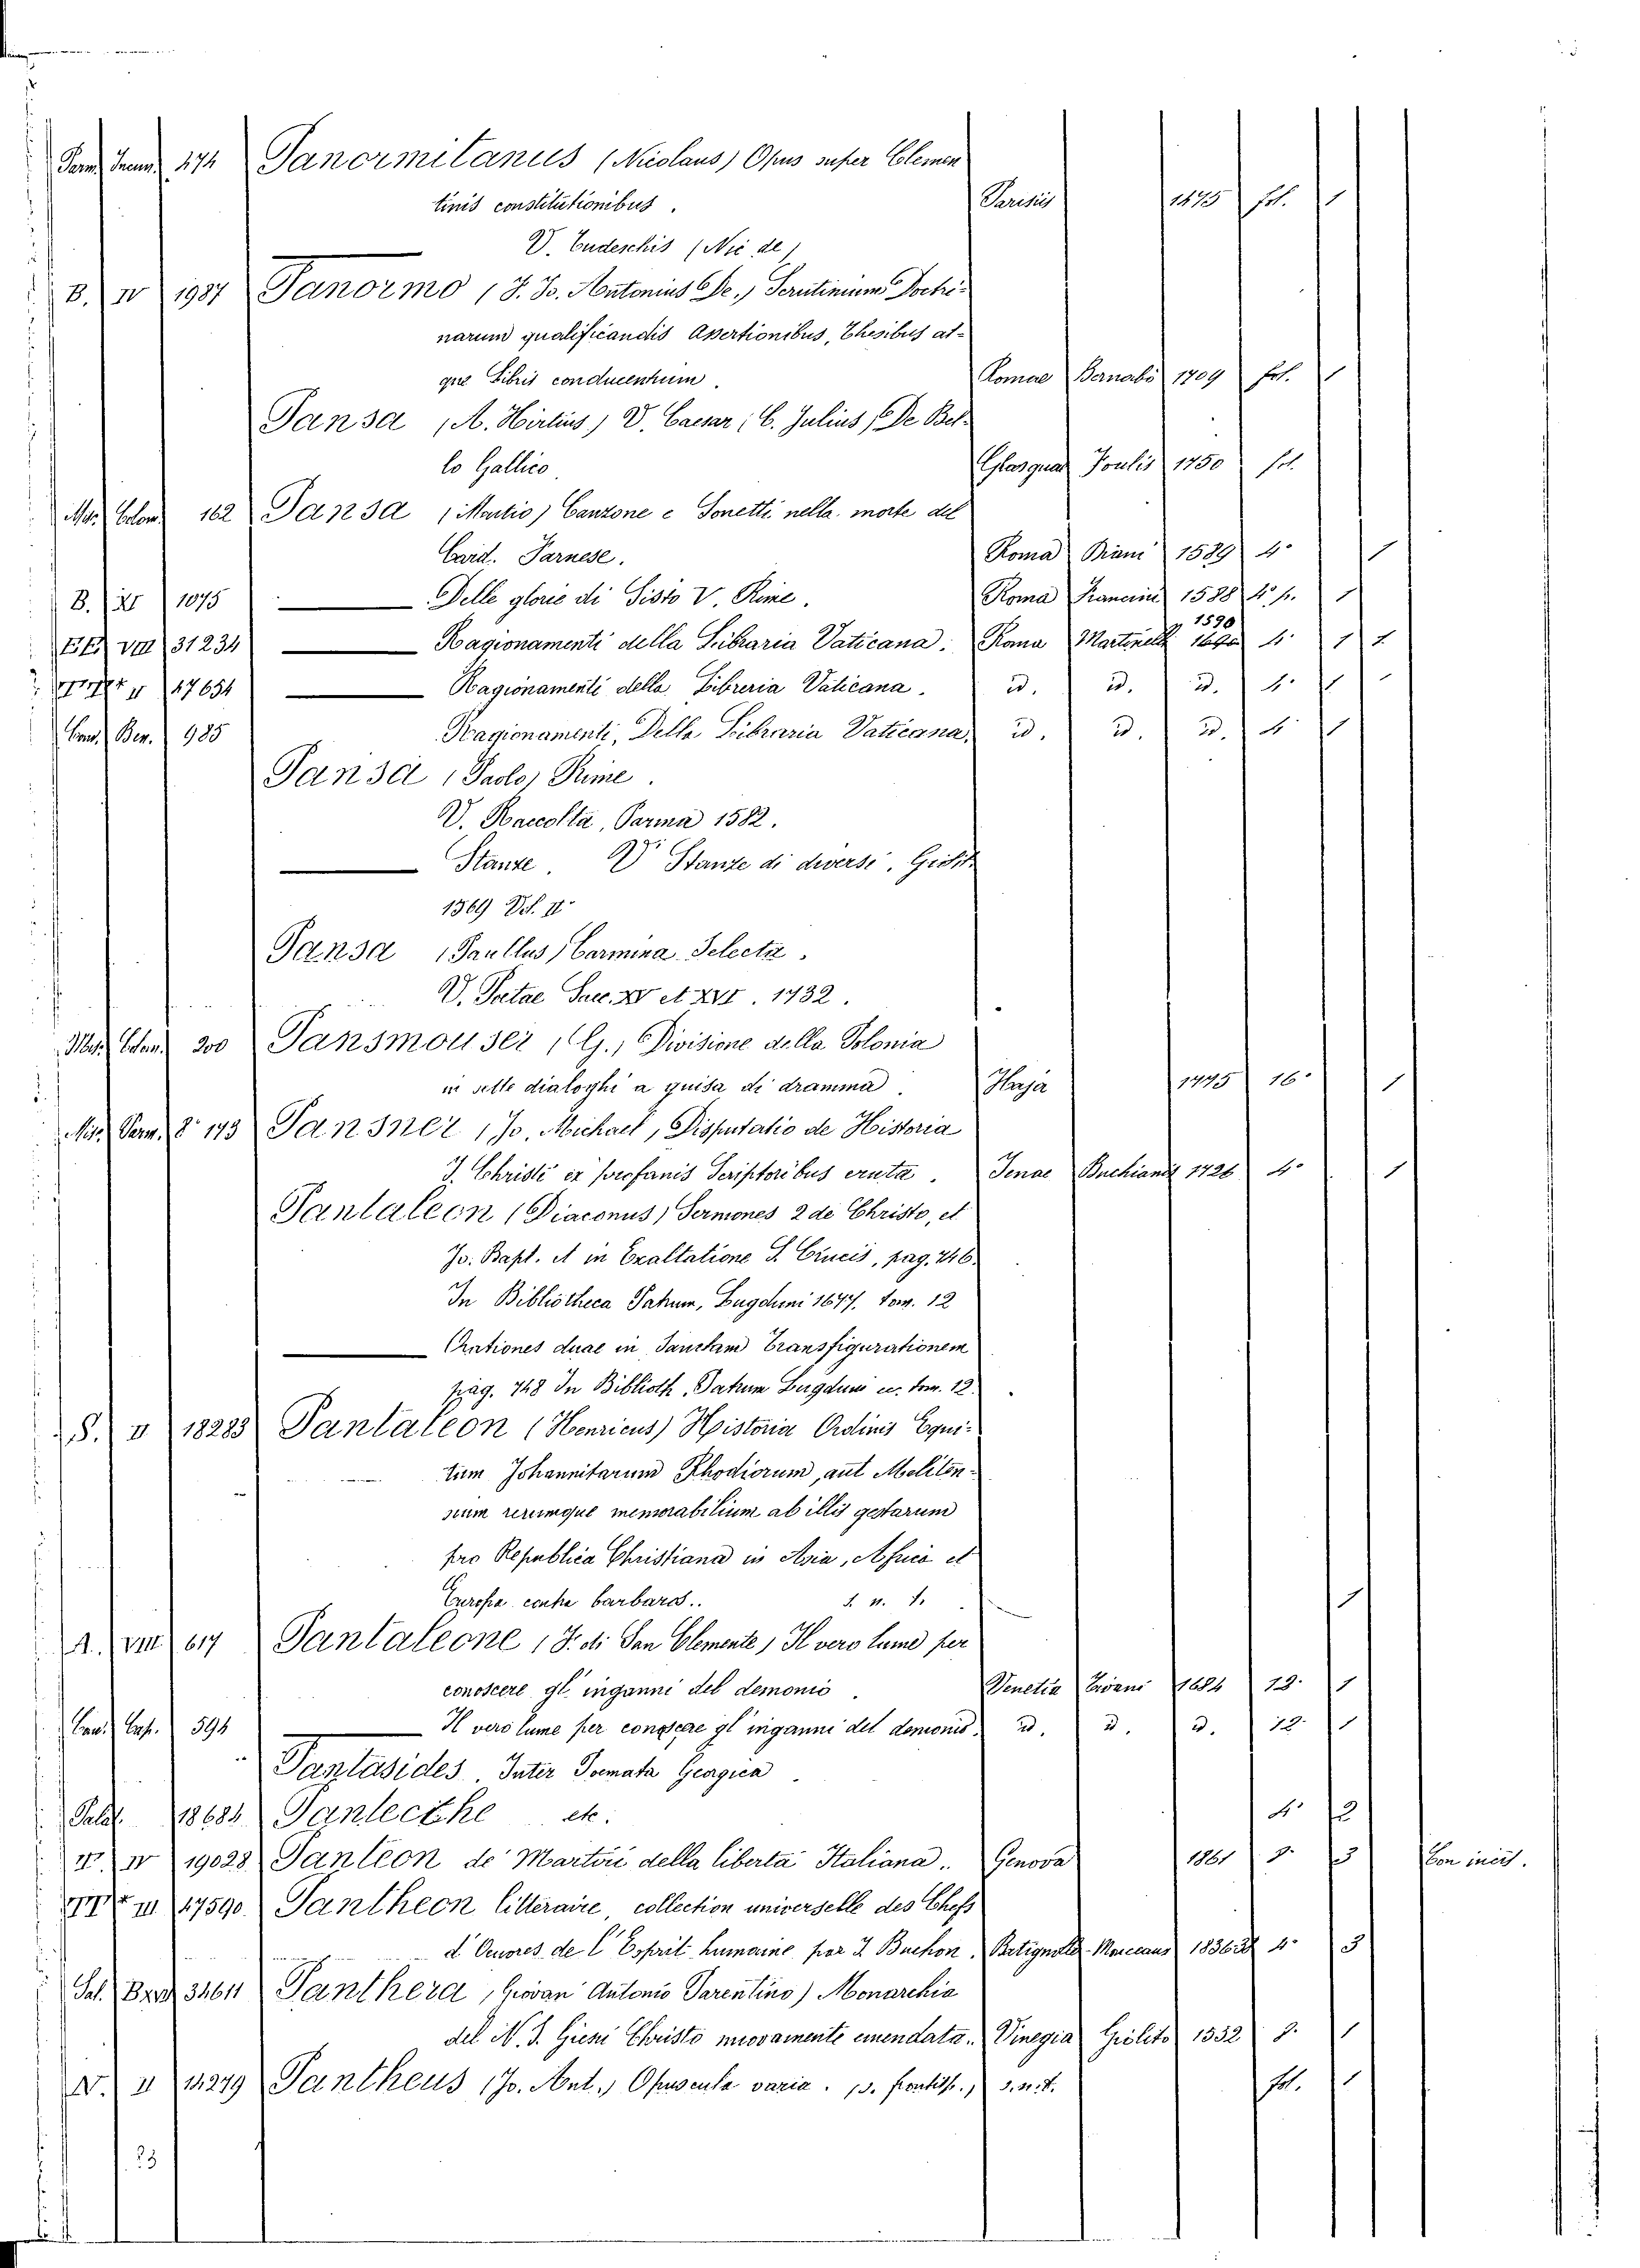 Parm. Incun. 474 Panormitanus (Nicolaus) Opus super Clemen
tinis constitutionibus. Parisiis 1475 fol. 1
V. Eudeschis (Nic. de)
B. IV 1987 Panormo (F. Jo. Antonius De,) Scrutinium Doctri-
narum qualificandis Assertionibus, Thesibus at-
que Libris conducentium. Romae Bernabò 1709 fol. 1
Pansa (A. Hirtius) V. Caesar, C. Julius, De Bel-
lo Gallico Glasguae Foulis 1750 fol.
Mis. Colom. 162 Pansa (Mutio) Canzone e Sonetti nella morte del
Card. Farnese. Roma Diani 1589 4° 1
B. XI 1075 Delle glorie di Sisto V. Rime. Roma 1588 4° 1
VIII 31234 Ragionamenti della Libraria Vaticana. Roma Martinelli 1590 4° 1
V 47654 Ragionamenti della Libreria Vaticana. id. id. id. 4° 1
Ben. 985 Ragionamenti, Della Libraria Vaticana, id. id. id. 4° 1
Pansa (Paolo) Rime.
V. Raccolta, Parma 1582.
Stanze. V. Stanze di diversi, Giolit.
1569 Vol. II
Pansa (Paullus) Carmina Selecta.
V. Poetae Saec. XV et XVI. 1732.
Mis. Colom. 200 Pansmouser (G.) Divisione della Polonia
in sette dialoghi a guisa di dramma. Haja 1775 16° 1
Mis. Parm. 8° 143 Pansner (Jo. Michael) Disputatio de Historia
J. Christi ex profanis Scriptoribus eruta. Jenae Buchiani 1726 4° 1
Pantaleon (Diaconus) Sermones 2 de Christo, et
Jo. Bapt. et in Exaltatione S. Crucis, pag. 746.
In Bibliotheca Patrum, Lugduni 1677. tom. 12
Orationes duae in Sanctam Transfigurationem
pag. 748 In Biblioth. Patrum Lugduni tom. 12.
S. II 18283 Pantaleon (Henricus) Historia Ordinis Equi-
tum Johannitarum Rhodiorum, aut Meliten-
sium rerumque memorabilium ab illis gestarum
pro Republica Christiana in Asia, Africa et
Europa contra barbaros.. s. n. t. 1
A. VIII 617 Pantaleone (F. di San Clemente) Il vero lume per
conoscere gl' inganni del demonio. Venetia Tivani 1684 12° 1
Cap. 594 Il vero lume per conoscere gl' inganni del demonio. id. id. id. 12° 1
Pantasides. Inter Poemata Georgica.
Palat. 18684 Pantecthe etc. 4° 2
IV 19028 Panteon de' Martiri della libertà Italiana. Genova 1861 8° 3 Con incis.
III 47590 Pantheon litteraire, collection universelle des Chefs
d' Ouvres de l' Esprit humaine par J. Buchon. Batignolles-Monceaux 1836.38 4° 3
Sal. 34611 Panthera (Giovan Antonio Parentino) Monarchia
del N. S. Giesu Christo nuovamente emendata. Vinegia Giolito 1552 8° 1
N. II 14279 Pantheus (Jo. Ant.) Opuscula varia. (s. frontisp.) s. n. t. fol. 1
23